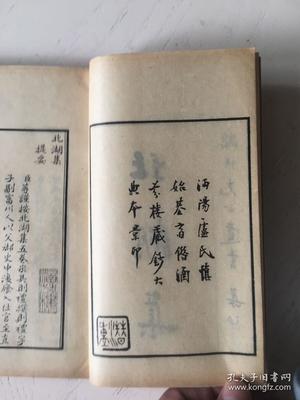 沔陽盧氏慎
始基齋借涵
芬樓藏鈔大
典本景印
北湖集
提要
臣等謹按北湖集五卷宋吳則禮撰則禮字
子副富川人以父御史中復廕入仕官至直
孔夫子旧书网